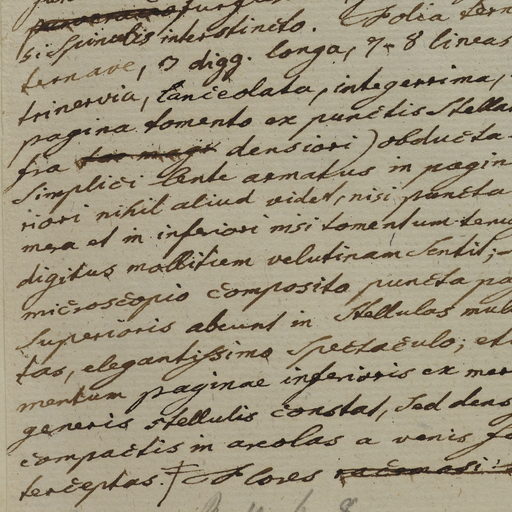 si Spinulis interstincto. Folia tern
ternave, 5 digg. longa, 7-8 lineas
trinervia, lanceolata, integerrima,
pagina tomento ex punctis Stellat
fra densiori) obducta.
Simplici lente armatus in pagin
riori nihil aliud videt, nisi puncta
mera et in inferiori nisi tomentum tenu
digitus mollitiem velutinam sentit;
microscopio composito puncta pa
Superioris abeunt in Stellulas mul
tas, elegantissimo spectaculo; et
mentum paginae inferioris ex mer
generis stellulis constat, sed dens
compactis in areolas a venis
terceptas. Flores racemosi